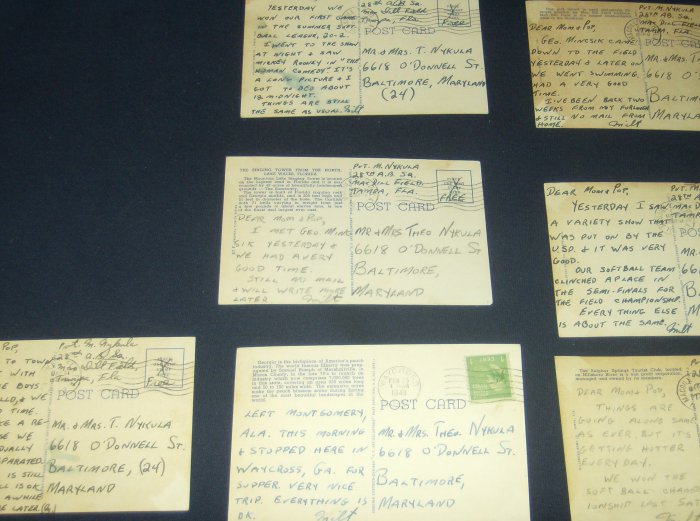 YESTERDAY WE
WON OUR FIRST GAME
IN THE SUMMER SOFT
BALL LEAGUE, 20-2.
I WENT TO THE SHOW
AT NIGHT & SAW
MICKEY ROONEY IN "THE
HUMAN COMEDY". IT'S
A LONG PICTURE & I
GOT TO BED ABOUT
12 MIDNIGHT.
THINGS ARE STILL
THE SAME AS USUAL. Milt
28TH A.B. SQ.
MAC DILL FIELD
TAMPA, FLA.
Free
POST CARD
MR. & MRS. T. NYKULA
6618 O'DONNELL ST.
BALTIMORE, MARYLAND
(24)
DEAR MOM & POP,
GEO. MINCSIK CAME
DOWN TO THE FIELD
YESTERDAY & LATER ON
WE WENT SWIMMING.
HAD A VERY GOOD
TIME.
I'VE BEEN BACK TWO
WEEKS FROM MY FURLOUGH
& STILL NO MAIL FROM
HOME. Milt
PVT. M. NYKULA
28TH AB. SQ.
MAC DILL FIELD
TAMPA, FLA.
POST
MR. & MRS.
6618 O'
BALTIMO
MARYLAN
THE SINGING TOWER FROM THE NORTH,
LAKE WALES, FLORIDA
DEAR MOM & POP,
I MET GEO. MINC
SIK YESTERDAY &
WE HAD A VERY
GOOD TIME.
STILL NO MAIL
& WILL WRITE MORE
LATER Milt
PVT. M. NYKULA
28TH A.B. SQ.
MAC DILL FIELD,
TAMPA, FLA.
FREE
POST CARD
MR. & MRS THEO NYKULA
6618 O'DONNELL ST
BALTIMORE,
MARYLAND
DEAR MOM & POP,
YESTERDAY I SAW
A VARIETY SHOW THAT
WAS PUT ON BY THE
U.S.O. & IT WAS VERY
GOOD.
OUR SOFTBALL TEAM
CLINCHED A PLACE IN
THE SEMI-FINALS FOR
THE FIELD CHAMPIONSHIP.
EVERYTHING ELSE
IS ABOUT THE SAME. Milt
PVT. M.
28TH A
MAC D
TAMPA
POS
MR. & M
6618 O
BALTIM
MARYL
POP,
TO TOWN
WITH
BOYS
& WE
TIME.
A RE-
WE
STILL
IS OK
AWHILE
LATER
Pvt M. Nykula
28th a.B. Sq.
Mac Dill Field
Tampa, Fla
Free
POST CARD
MR. & MRS. T. NYKULA
6618 O'DONNELL ST.
BALTIMORE, (24)
MARYLAND
Georgia is the birthplace of America's peach
industry. The world famous Elberta was prop-
LEFT MONTGOMERY,
ALA. THIS MORNING
& STOPPED HERE IN
WAYCROSS, GA. FOR
SUPPER. VERY NICE
TRIP. EVERYTHING IS
OK. Milt
1 CENT 1
1943
POST CARD
MR. & MRS. THEO. NYKULA
6618 O'DONNELL ST.
BALTIMORE,
MARYLAND
The Sulphur Springs Tourist Club, located
DEAR MOM & POP,
THINGS ARE
GOING ALONG SAME
AS EVER, BUT IT'S
GETTING HOTTER
EVERY DAY.
WE WON THE
SOFT BALL CHAMP-
IONSHIP LAST